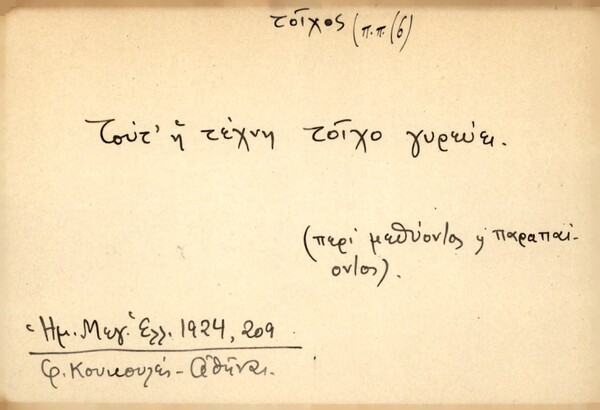 τοῖχος (π.π. (6)
Τούτ' ἡ τέχνη τοῖχο γυρεύει.
(περὶ μεθύοντος ἢ παραπαί-
οντος).
Ἡμ. Μεγ. Ἑλλ. 1924, 209
Φ. Κουκουλές - Ἀθῆναι.